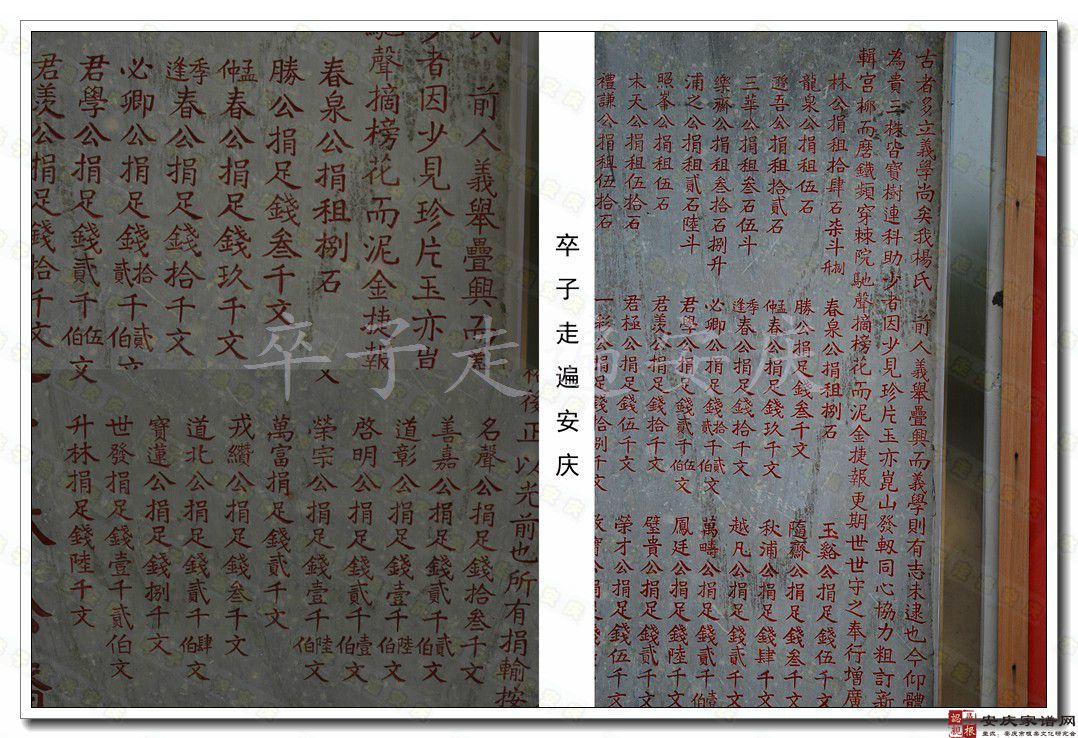 古者多立義學尚矣我楊氏 前人義舉疊興而義學則有志未逮也今仰體
為貴三株皆寶樹連科助少者因少見珍片玉亦崑山發軔同心協力粗訂新
輯宮槨而磨鐵頻穿棘院馳聲摘榜花而泥金捷報更期世世守之奉行增廣
林公捐租拾肆石柒斗捌升
龍泉公捐租伍石
遜吾公捐租拾貳石
三華公捐租叁石伍斗
樂齋公捐租叁拾石捌升
浦之公捐租貳石陸斗
照峯公捐租伍石
木天公捐租伍拾石
禮謙公捐租伍拾石
春泉公捐租捌石
勝公捐足錢叁千文
孟仲春公捐足錢玖千文
季逢春公捐足錢拾千文
必卿公捐足錢貳拾千貳伯文
君學公捐足錢貳千伍伯文
君羨公捐足錢拾千文
君極公捐足錢伍千文
公捐足錢拾捌千文
玉谿公捐足錢伍千文
隨齋公捐足錢叁千文
秋浦公捐足錢肆千文
越凡公捐足錢貳千文
萬疇公捐足錢貳千壹
鳳廷公捐足錢陸千文
璧貴公捐足錢貳千文
榮才公捐足錢伍千文
寶公捐足錢
卒子走遍安庆
氏 前人義舉疊興而義
者因少見珍片玉亦崑
馳聲摘榜花而泥金捷報
春泉公捐租捌石
勝公捐足錢叁千文
孟仲春公捐足錢玖千文
季逢春公捐足錢拾千文
必卿公捐足錢貳拾千貳伯文
君學公捐足錢貳千伍伯文
君羨公捐足錢拾千文
後正以光前也所有捐輸按
名聲公捐足錢拾叁千文
善嘉公捐足錢貳千貳伯文
道彰公捐足錢壹千陸伯文
啓明公捐足錢貳千壹伯文
榮宗公捐足錢壹千陸伯文
萬富捐足錢貳千文
戎纘公捐足錢叁千文
道北公捐足錢貳千肆伯文
寶蓮公捐足錢捌千文
世發捐足錢壹千貳伯文
升林捐足錢陸千文
卒子走遍安庆
安庆家谱网